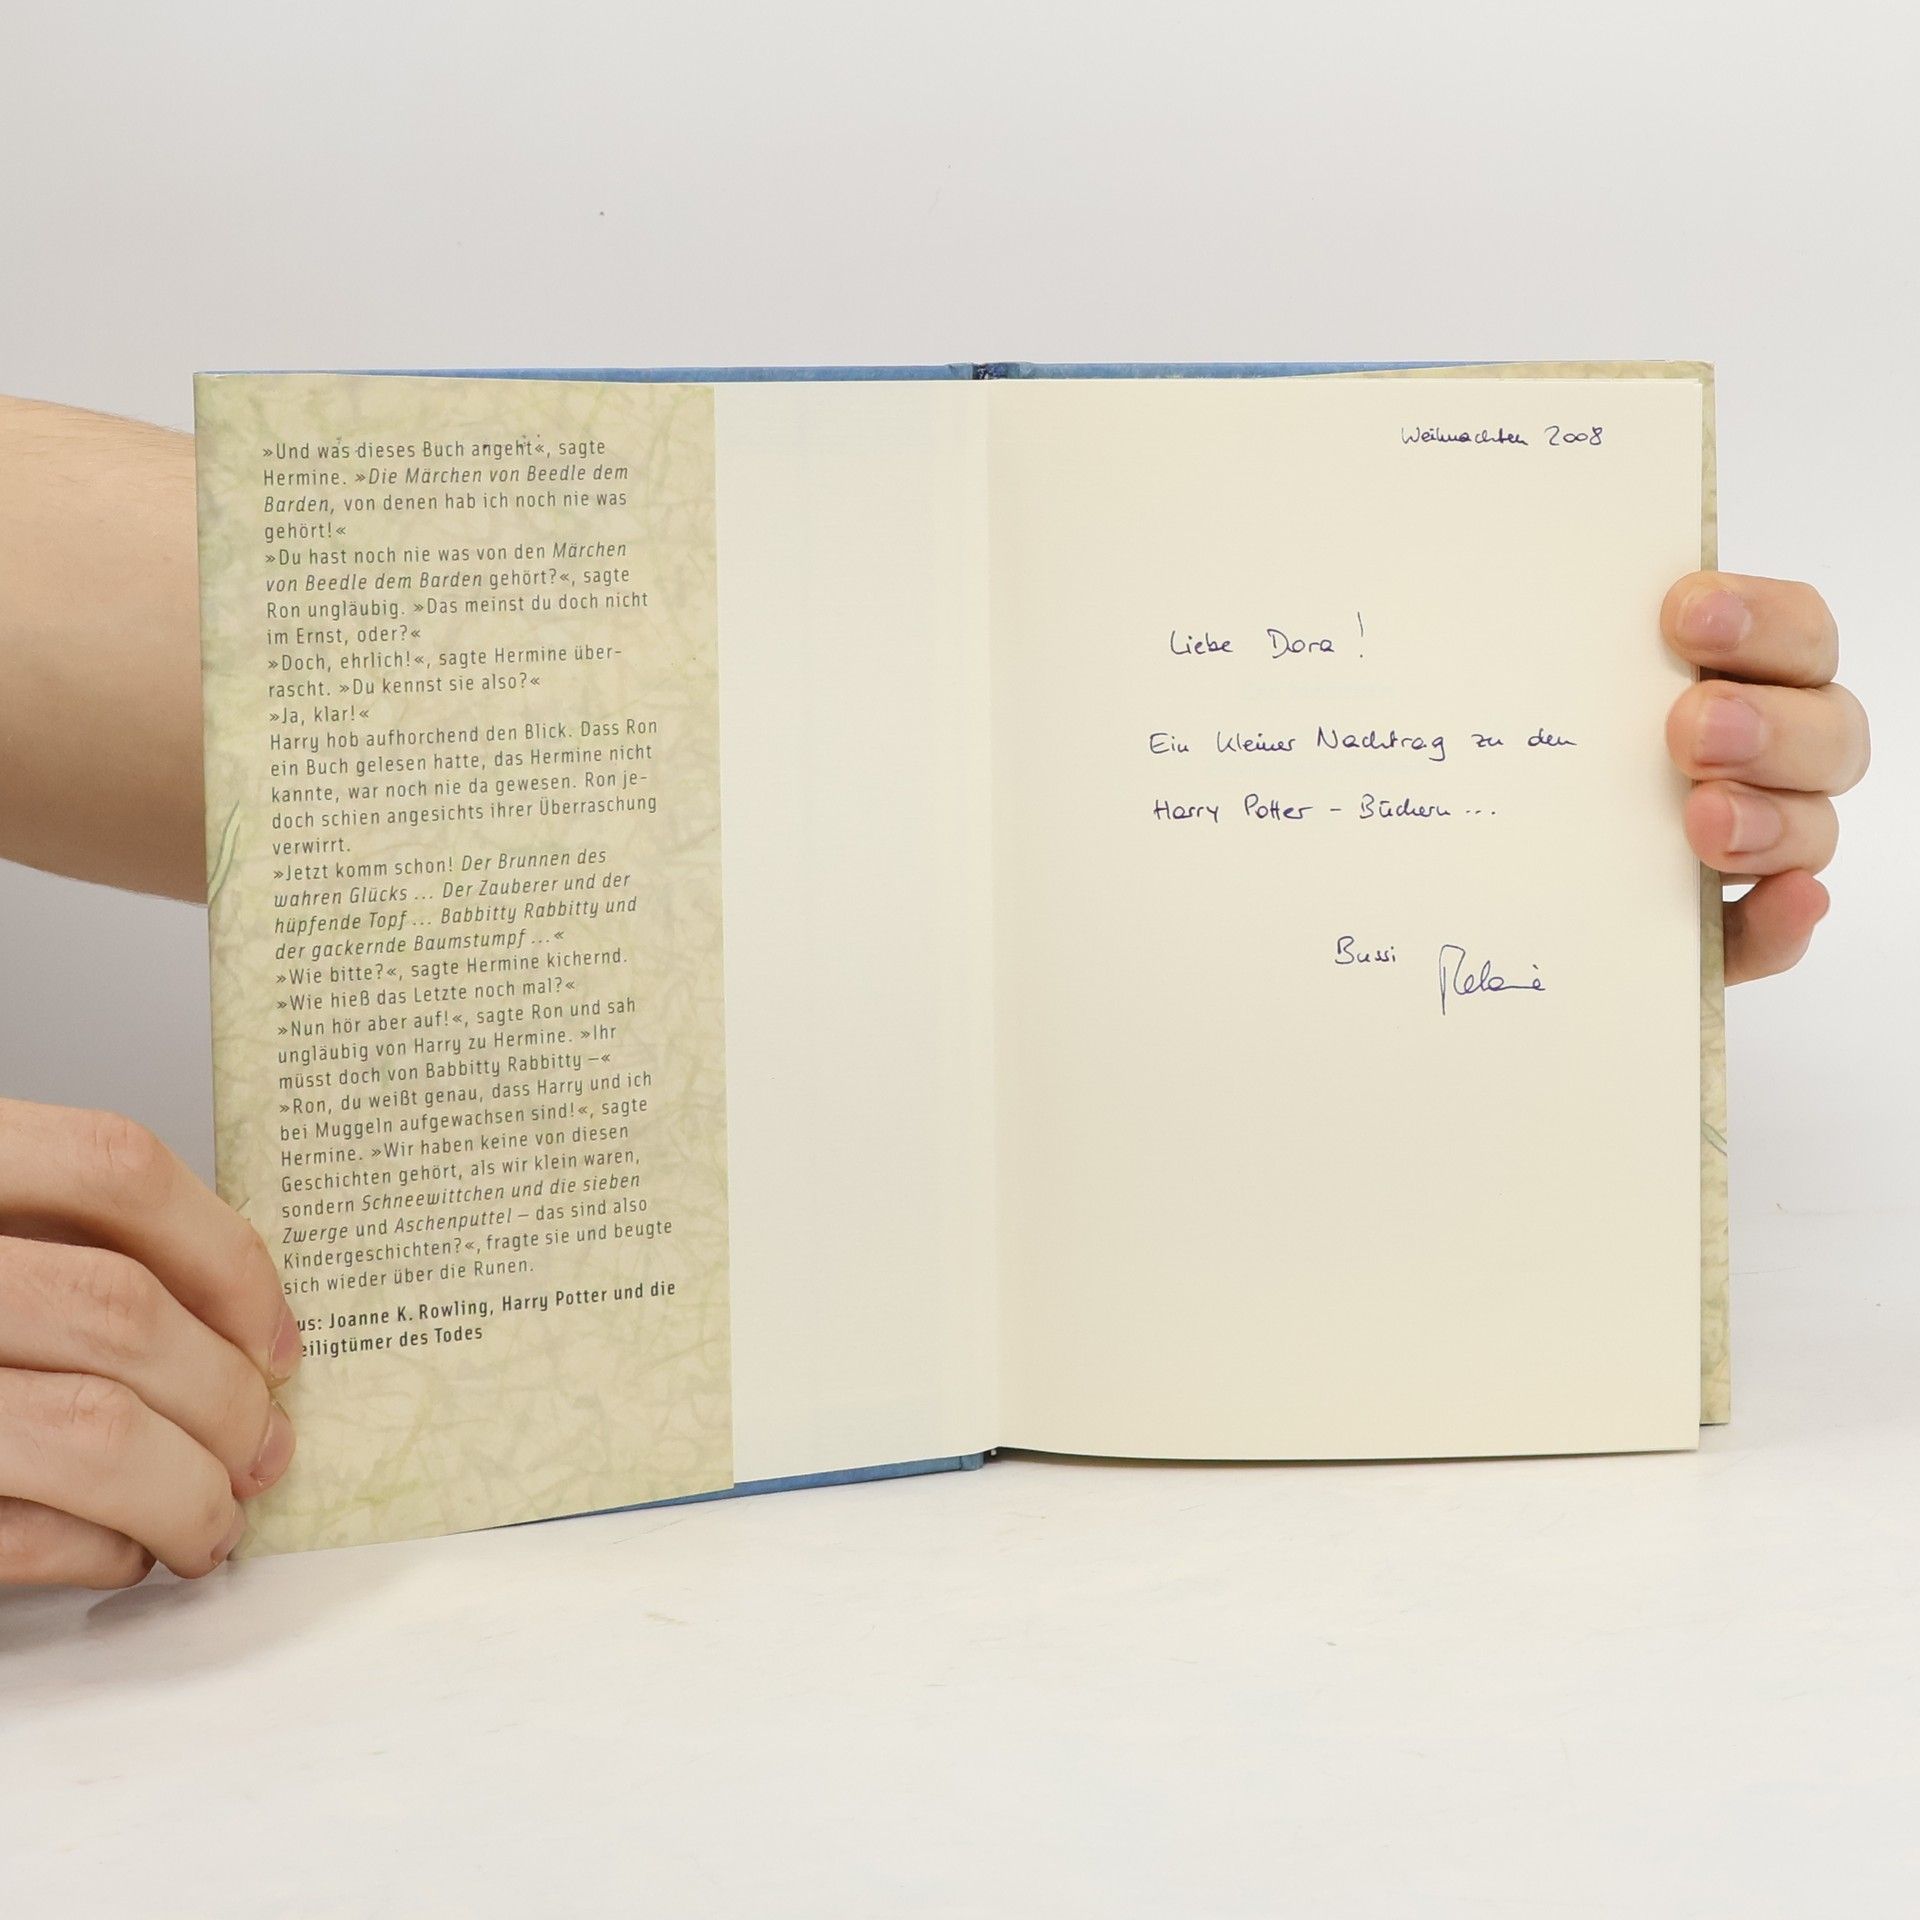 »Und was dieses Buch angeht«, sagte
Hermine. »Die Märchen von Beedle dem
Barden, von denen hab ich noch nie was
gehört!«
»Du hast noch nie was von den Märchen
von Beedle dem Barden gehört?«, sagte
Ron ungläubig. »Das meinst du doch nicht
im Ernst, oder?«
»Doch, ehrlich!«, sagte Hermine über-
rascht. »Du kennst sie also?«
»Ja, klar!«
Harry hob aufhorchend den Blick. Dass Ron
ein Buch gelesen hatte, das Hermine nicht
kannte, war noch nie da gewesen. Ron je-
doch schien angesichts ihrer Überraschung
verwirrt.
»Jetzt komm schon! Der Brunnen des
wahren Glücks ... Der Zauberer und der
hüpfende Topf ... Babbitty Rabbitty und
der gackernde Baumstumpf ...«
»Wie bitte?«, sagte Hermine kichernd.
»Wie hieß das Letzte noch mal?«
»Nun hör aber auf!«, sagte Ron und sah
ungläubig von Harry zu Hermine. »Ihr
müsst doch von Babbitty Rabbitty –«
»Ron, du weißt genau, dass Harry und ich
bei Muggeln aufgewachsen sind!«, sagte
Hermine. »Wir haben keine von diesen
Geschichten gehört, als wir klein waren,
sondern Schneewittchen und die sieben
Zwerge und Aschenputtel – das sind also
Kindergeschichten?«, fragte sie und beugte
sich wieder über die Runen.
us: Joanne K. Rowling, Harry Potter und die
eiligtümer des Todes
Weihnachten 2008
Liebe Dora!
Ein kleiner Nachtrag zu den
Harry Potter - Büchern ...
Bussi Melanie